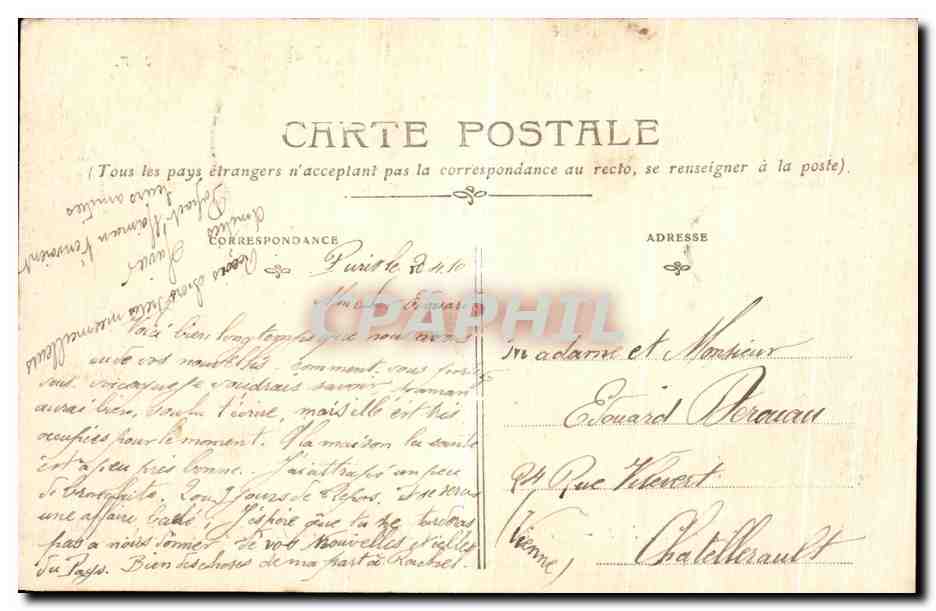 CARTE POSTALE
(Tous les pays étrangers n'acceptent pas la correspondance au recto, se renseigner à la poste).
CORRESPONDANCE
Paris le 4.10
Mon cher Edouard
Voilà bien longtemps que nous avons
eu de vos nouvelles. comment vous portez
vous. Je voudrais savoir maman
aurai bien voulu t'écrire, mais elle est très
occupées pour le moment. A la maison la santé
est a peu près bonne. J'ai attrapé un peu
de bronchite. 2 ou 3 jours de Repos, et se seras
une affaire baclé, J'espère que tu ne tarderas
pas a nous donner de vos Nouvelles et celles
du Pays. Bien des choses de ma part à Rachel.
Amitiés
maman t'envoient
leurs amitiés
meilleurs
CPAPHIL
ADRESSE
Madame et Monsieur
Edouard Derouau
24 Rue Vilevert
Chatellerault
(Vienne)